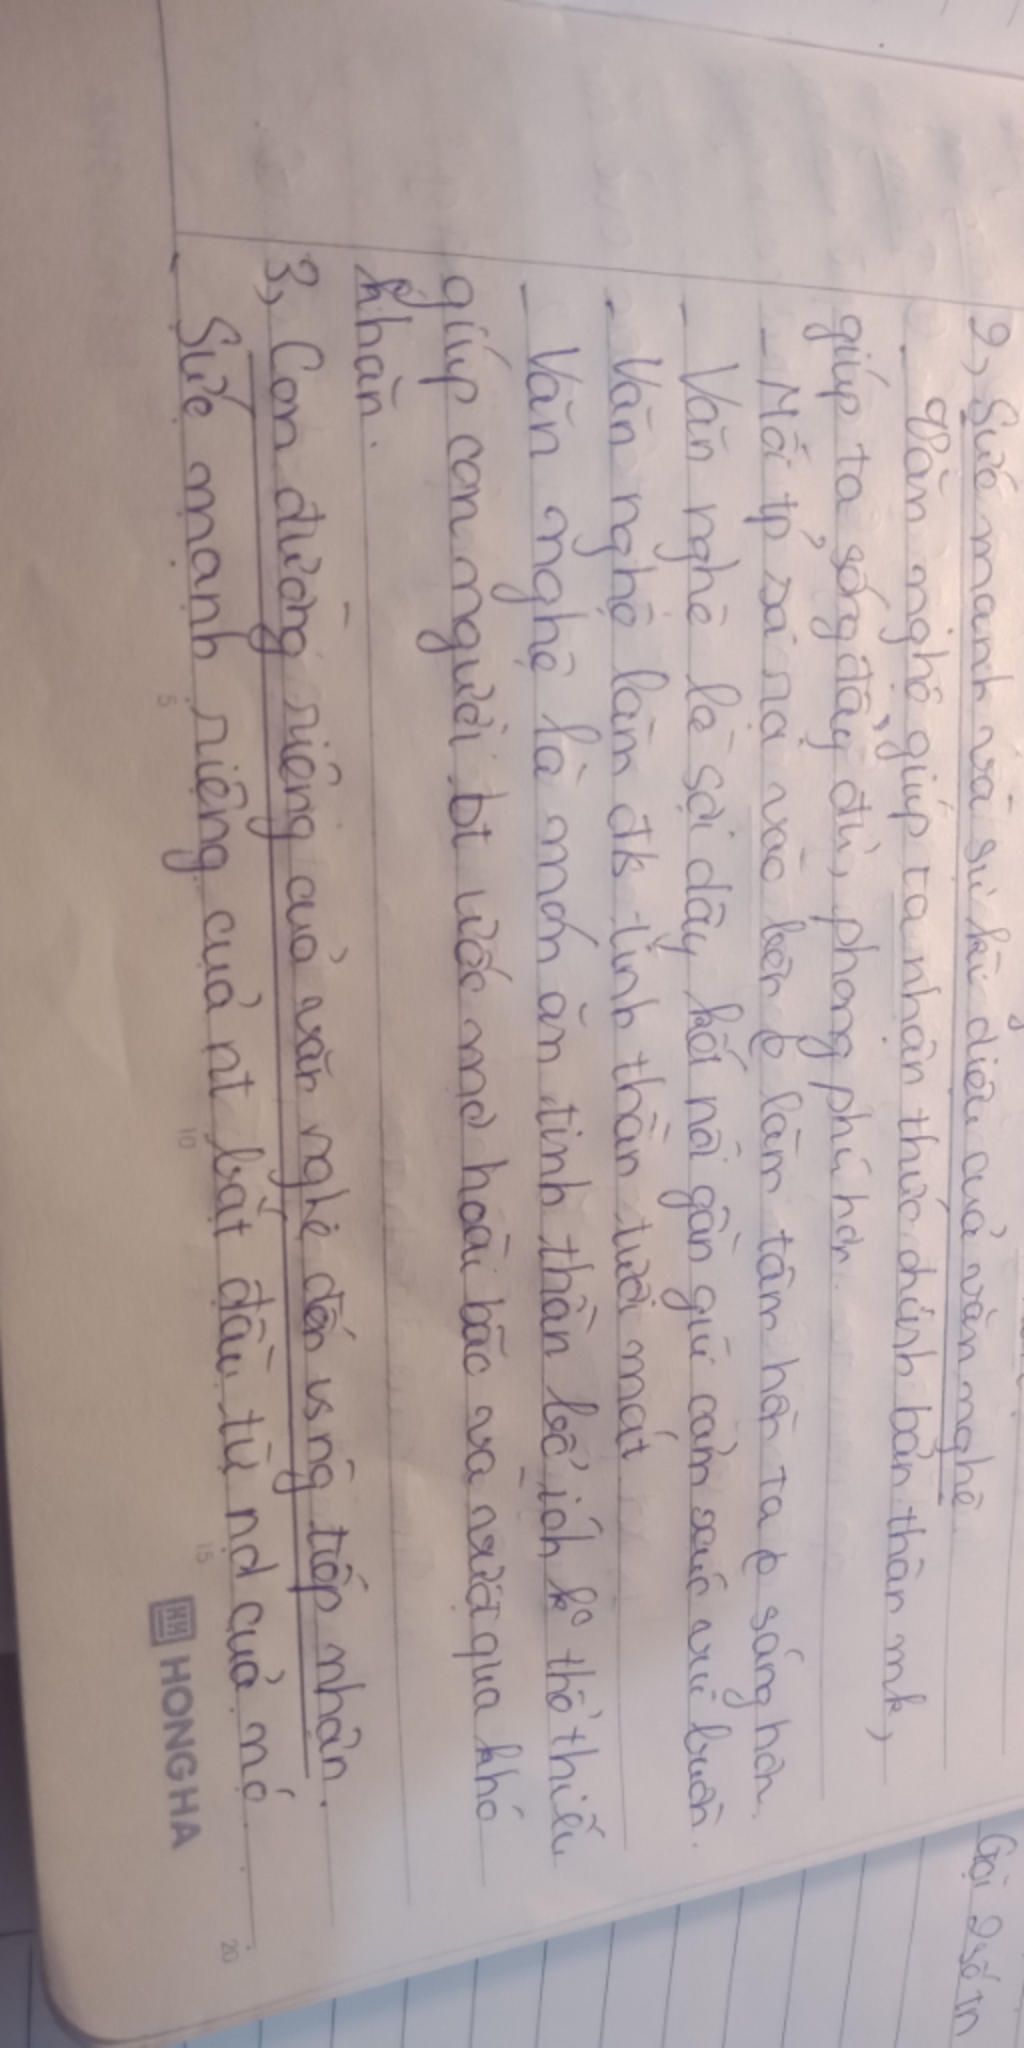 2, Sức mạnh và sự kì diệu của văn nghệ.
- Văn nghệ giúp ta nhận thức chính bản thân mk,
giúp ta sống đầy đủ, phong phú hơn.
- Mỗi tp rọi vào bên làm tâm hồn ta sáng hơn.
- Văn nghệ là sợi dây kết nối gần gũi cảm xúc vui buồn.
- Văn nghệ làm đ/s tinh thần tươi mát
- Văn nghệ là món ăn tinh thần bổ ích k° thể thiếu
giúp con người bt ước mơ hoài bão và vượt qua khó
khăn.
3, Con đường riêng của văn nghệ đến vs ng tiếp nhận.
- Sức mạnh riêng của nt bắt đầu từ nd của nó
5
10
15
20
HH HONG HA
Gọi 2 số tn